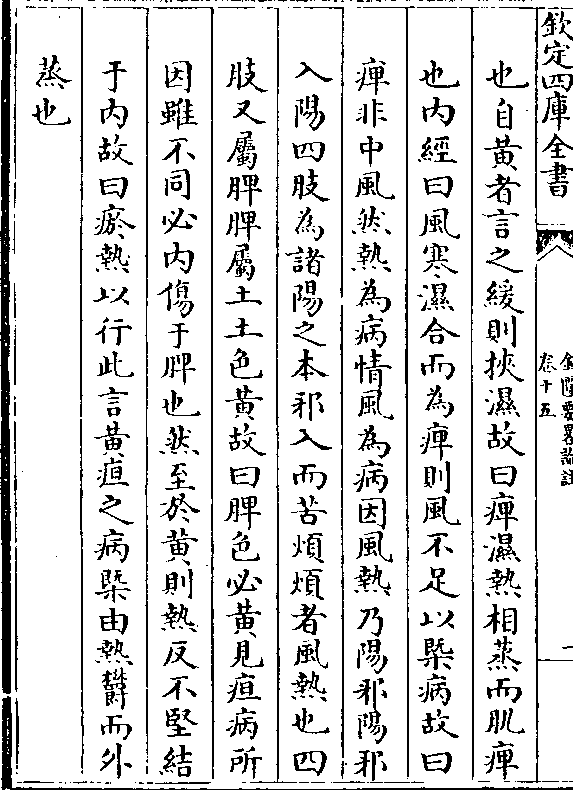 欽定四庫全書
金匱要畧論註
卷十五
也自黃者言之緩則挾濕故曰痺濕熱相蒸而肌痺
也内經曰風寒濕合而為痺則風不足以槩病故曰
痺非中風然熱為病情風為病因風熱乃陽邪陽邪
入陽四肢為諸陽之本邪入而苦煩煩者風熱也四
肢又屬脾脾屬土土色黃故曰脾色必黃見疸病所
因雖不同必内傷于脾也然至於黃則熱反不堅結
于内故曰瘀熱以行此言黃疸之病槩由熱欝而外
蒸也